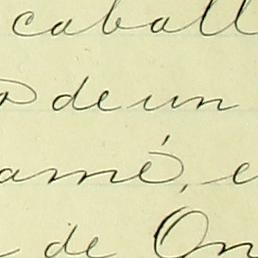 caball
de un
amé, e
de On